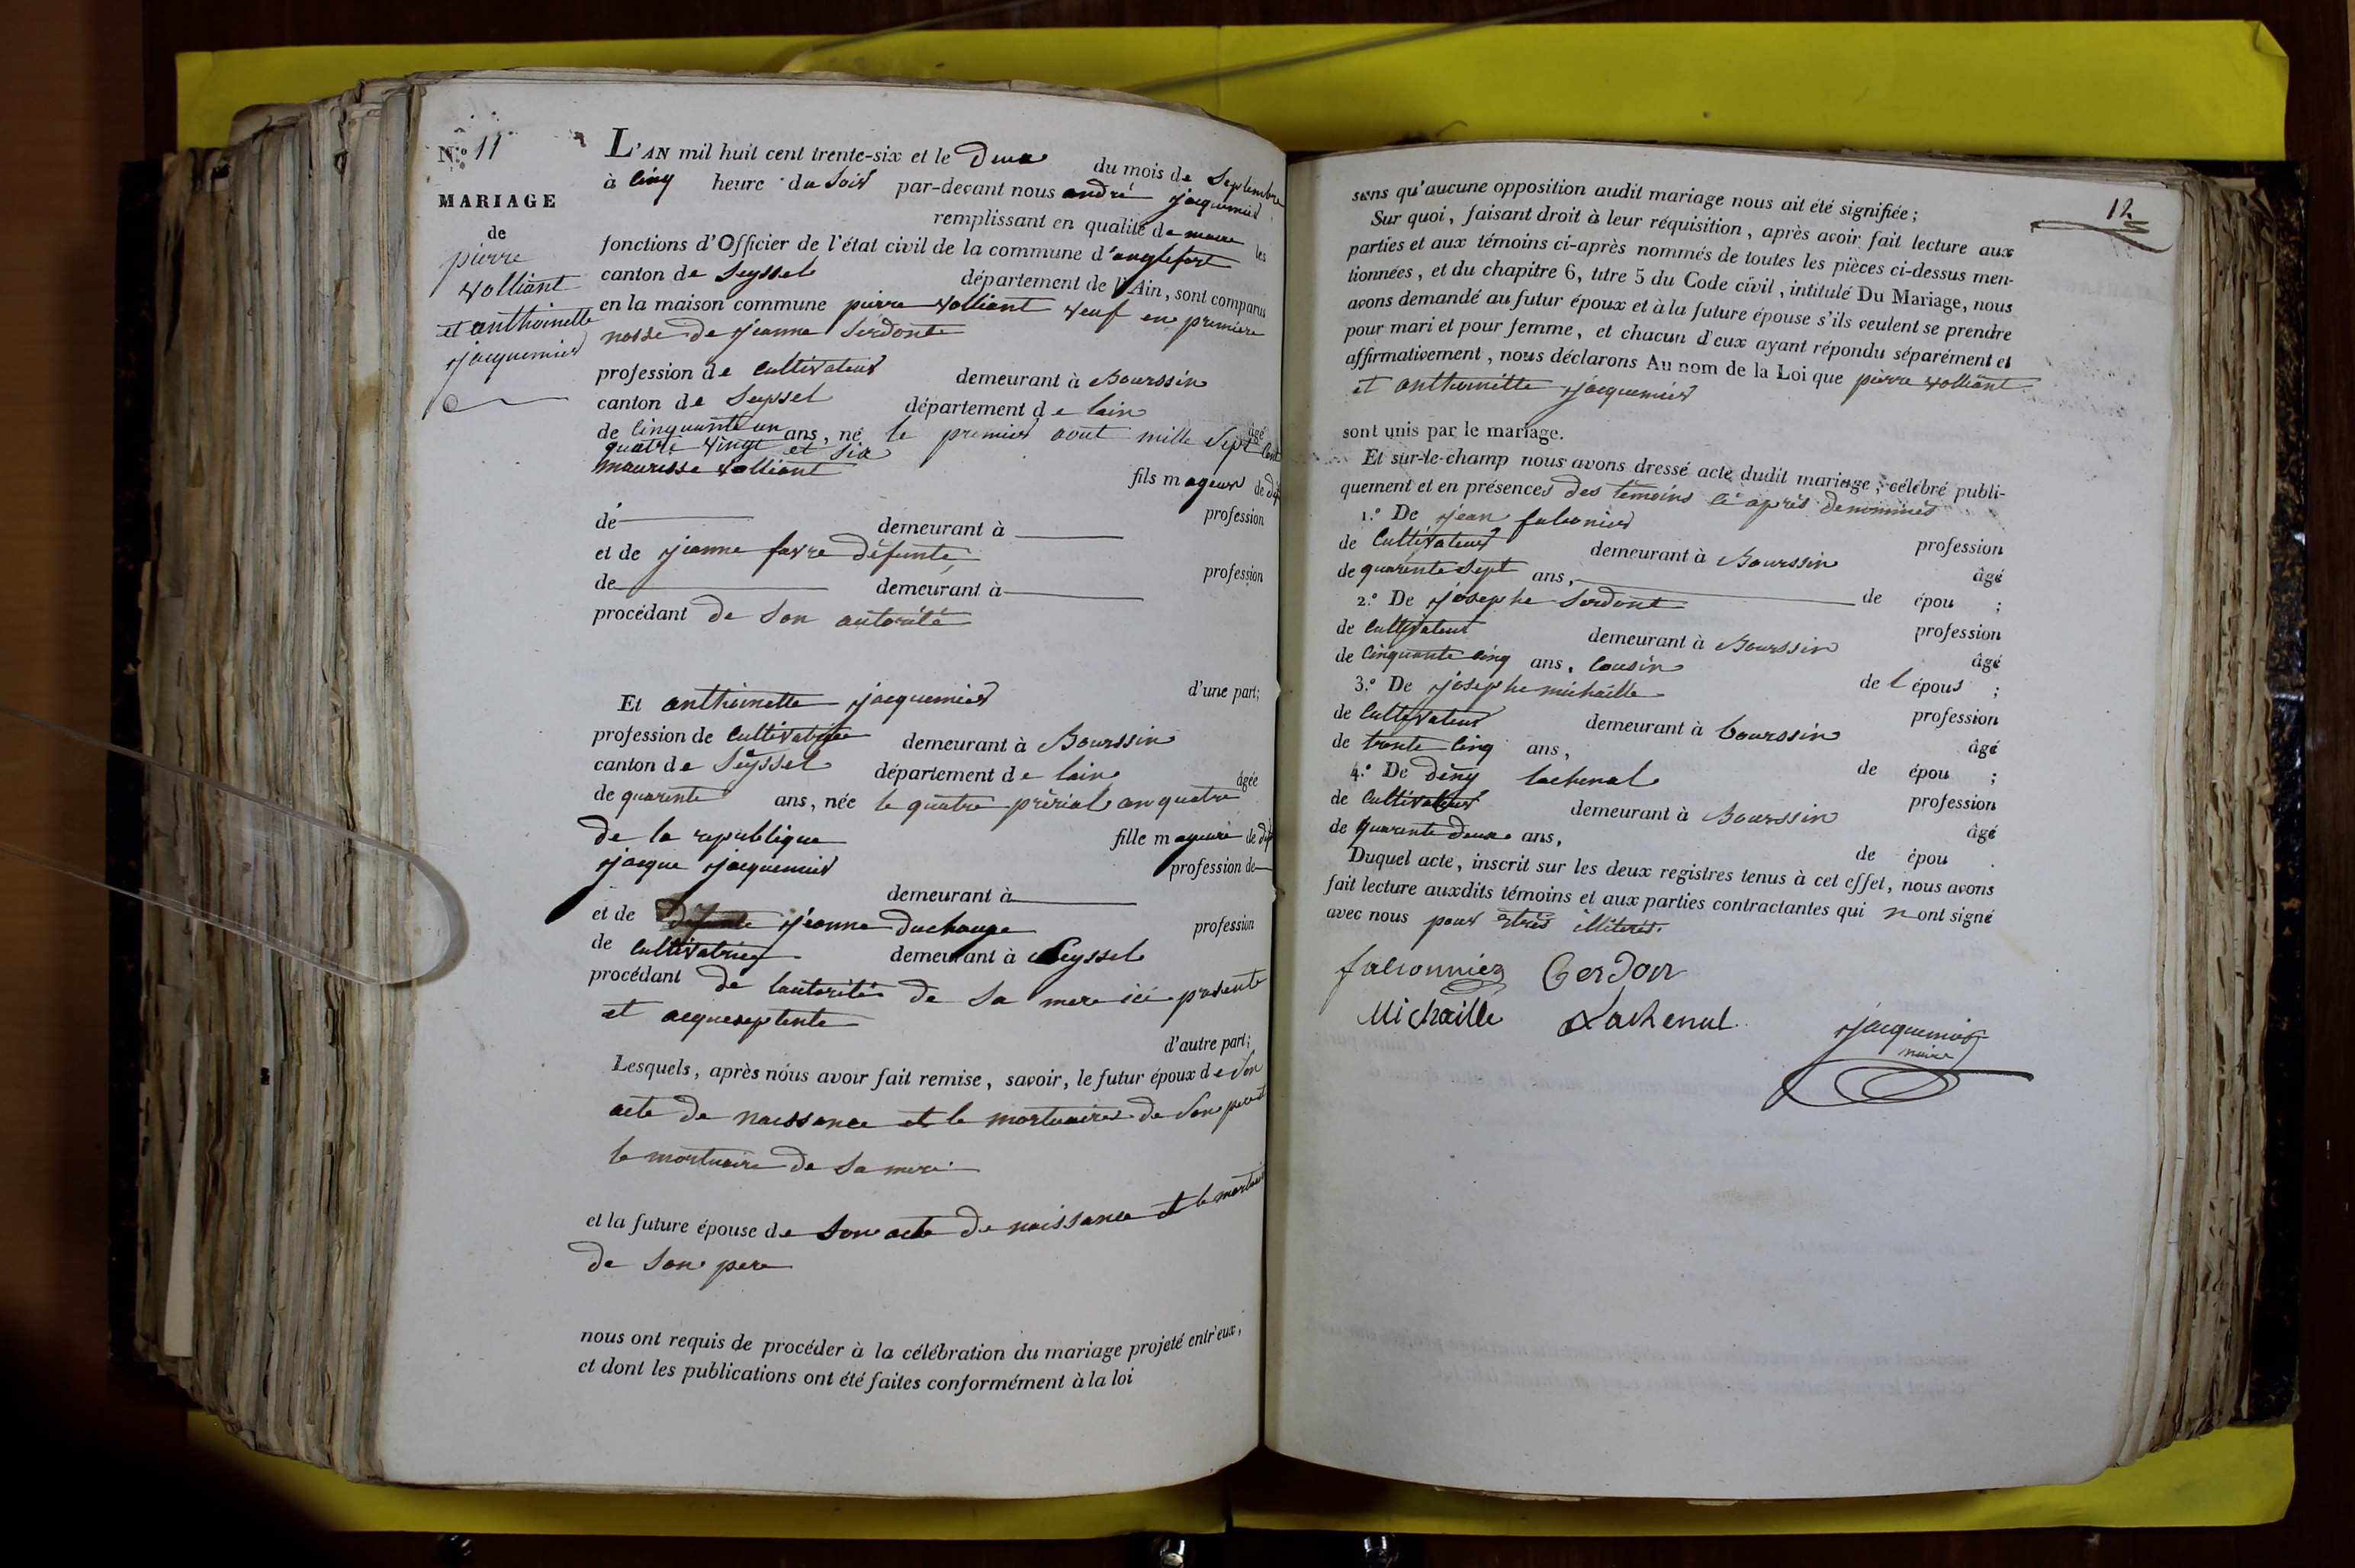 N.º 11
MARIAGE
de
pierre
volliant
et anthoinette
jacquemier
L'AN mil huit cent trente-six et le Deux du mois de Septembre
à cinq heure du Soir par-devant nous andré jacquemier
remplissant en qualité de maire les
fonctions d'Officier de l'état civil de la commune d'anglefort
canton de Seyssel département de l'Ain, sont comparus
en la maison commune pierre volliant veuf en premiere
nosse de jeanne Serdont
profession de cultivateur demeurant à Bourssin
canton de Seyssel département de lain âgé
de cinquante un ans, né le premier aout mille Sept Cent
quatre vingt et Six fils mageur de déf
maurisse volliant profession
de demeurant à
et de jeanne favre défunte, profession
de demeurant à
procédant de Son autorité
d'une part;
Et anthoinette jacquemier
profession de cultivatrice demeurant à Bourssin
canton de Seyssel département de lain âgée
de quarente ans, née le quatre prérial an quatre
de la republique fille mageure de déf
jacque jacquemier profession de
demeurant à
et de jeanne duchange profession
de cultivatrice demeurant à Seyssel
procédant de lautorité de Sa mere ici presente
et acqueseptente
d'autre part;
Lesquels, après nous avoir fait remise, savoir, le futur époux de Son
acte de naissance et le mortuaire de Son pere et
le mortuaire de Sa mere
et la future épouse de Son acte de naissance et le mortuaire
de Son pere
nous ont requis de procéder à la célébration du mariage projeté entr'eux,
et dont les publications ont été faites conformément à la loi
12
sans qu'aucune opposition audit mariage nous ait été signifiée;
Sur quoi, faisant droit à leur réquisition, après avoir fait lecture aux
parties et aux témoins ci-après nommés de toutes les pièces ci-dessus men-
tionnées, et du chapitre 6, titre 5 du Code civil, intitulé Du Mariage, nous
avons demandé au futur époux et à la future épouse s'ils veulent se prendre
pour mari et pour femme, et chacun d'eux ayant répondu séparément et
affirmativement, nous déclarons Au nom de la Loi que pierre volliant
et anthoinette jacquemier
sont unis par le mariage.
Et sur-le-champ nous avons dressé acte dudit mariage, célébré publi-
quement et en présences des témoins ci après denommés
1.º De jean falconier profession
de Cultivateur demeurant à Bourssin âgé
de quarente Sept ans, de épou ;
2.º De josephe Serdont profession
de Cultivateur demeurant à Bourssin âgé
de Cinquante cinq ans, Cousin de l époux ;
3.º De josephe michaille profession
de Cultivateur demeurant à bourssin âgé
de trente cinq ans, de épou ;
4.º De deny lachenal profession
de Cultivateur demeurant à Bourssin âgé
de quarente deux ans, de épou .
Duquel acte, inscrit sur les deux registres tenus à cet effet, nous avons
fait lecture auxdits témoins et aux parties contractantes qui n ont signé
avec nous pour etres illiterés.
falconnier Cerdon
Michaille Lachenal
jacquemier
maire